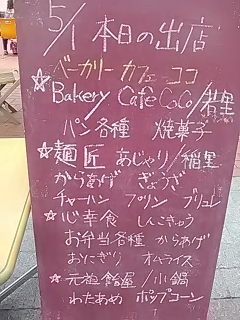 5/1 本日の出店
ベーカリー カフェ ココ
☆Bakery Cafe CoCo/
パン各種 焼菓子
☆麺匠 あじゃり/稲里
からあげ ぎょうざ
チャーハン プリン ブリュレ
☆心幸食 しんこきゅう
お弁当各種 からあげ
おにぎり オムライス
☆元祖飴屋/小鍋
わたあめ ポップコーン